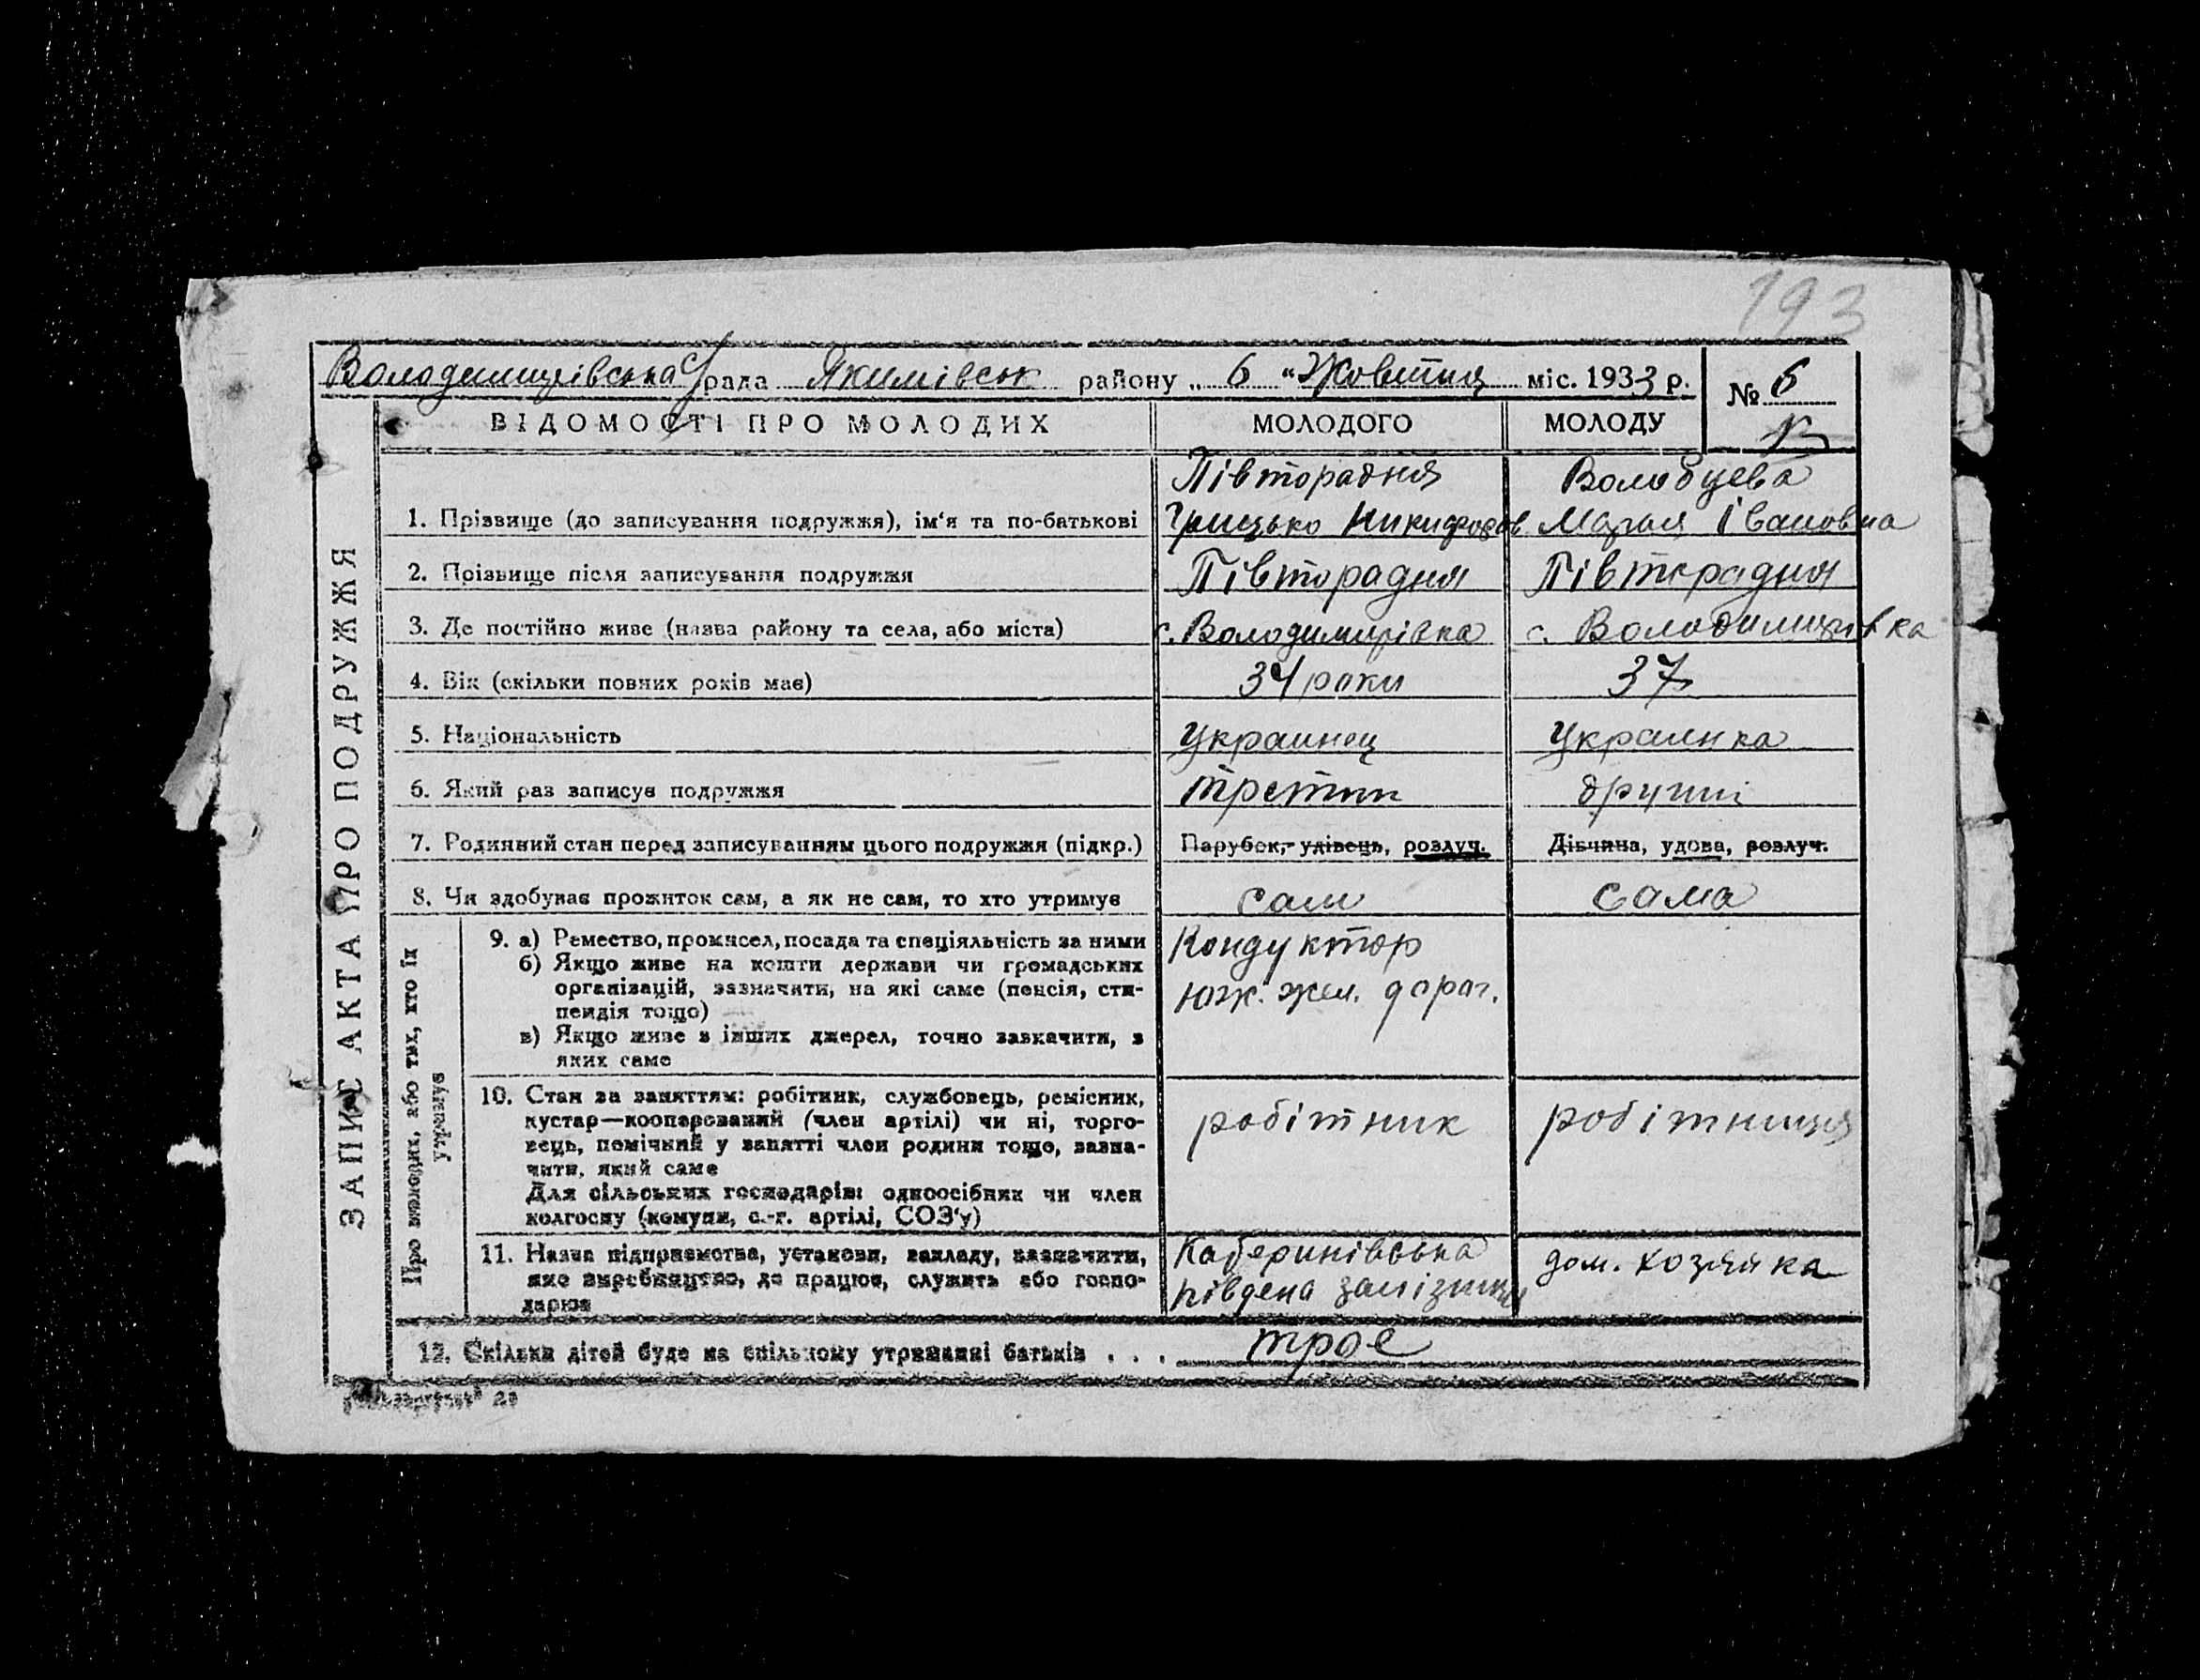 193
Володимирівська с/рада Якимівськ району „ 6 “ Жовтня міс. 1933 р.
№ 6
ВІДОМОСТІ ПРО МОЛОДИХ МОЛОДОГО МОЛОДУ
ЗАПИС АКТА ПРО ПОДРУЖЖЯ
Півторадня Волобуева
1. Прізвище (до записування подружжя), ім‘я та по-батькові Грицько Никифоров Мария Івановна
2. Прізвище після записування подружжя Півторадня Півторадня
3. Де постійно живе (назва району та села, або міста) с. Володимирівка с. Володимирівка
4. Вік (скільки повних років має) 34 роки 37
5. Національність Украинец Украинка
6. Який раз записує подружжя третий другий
7. Родинний стан перед записуванням цього подружжя (підкр.) Парубок, удівець, розлуч. Дівчина, удова, розлуч.
8. Чи здобуває прожиток сам, а як не сам, то хто утримує сам сама
Про молодих, або тих, хто їх
утримує
9. а) Ремество, промисел, посада та спеціяльність за ними Кондуктор
б) Якщо живе на кошти держави чи громадських
організацій, зазначити, на які саме (пенсія, сти- Юж. жел. дорог.
пендія тощо)
в) Якщо живе з інших джерел, точно зазначити, з
яких саме
10. Стан за заняттям: робітник, службовець, ремісник,
кустар—кооперований (член артілі) чи ні, торго- робітник робітниця
вець, помічний у занятті член родини тощо, зазна-
чити, який саме
Для сільських господарів: одноосібник чи член
колгоспу (комуни, с.-г. артілі, СОЗ‘у)
11. Назва підприємства, установи, закладу, зазначити,
яке виробництво, де працює, служить або госпо- південа залізниця дом. хозяйка
дарює
12. Скільки дітей буде на спільному утриманні батьків . . . трое